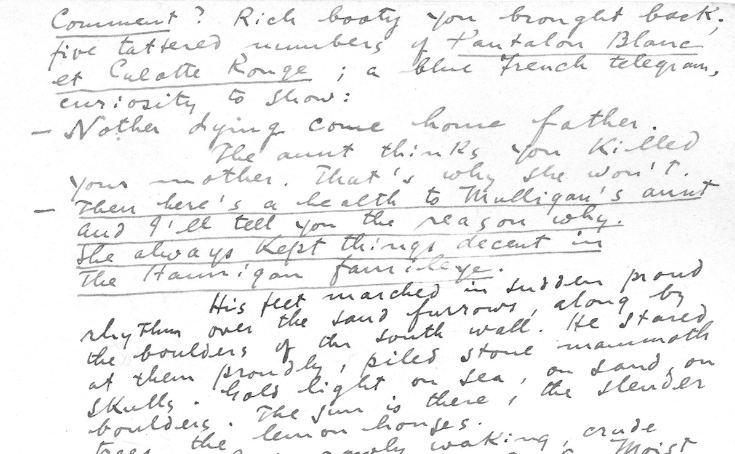 Comment? Rich booty you brought back;
five tattered numbers of Pantalon Blanc
et Culotte Rouge; a blue French telegram,
curiosity to show:
– Nother dying come home father.
The aunt thinks you killed
your mother. That's why she won't.
– Then here's a health to Mulligan's aunt
and I'll tell you the reason why.
She always kept things decent in
The Hannigan famileye.
His feet marched in sudden proud
rhythm over the sand furrows, along by
the boulders of the south wall. He stared
at them proudly, piled stone mammoth
skulls. Gold light on sea, on sand, on
boulders. The sun is there, the slender
trees, the lemon houses.
waking, crude
Moist